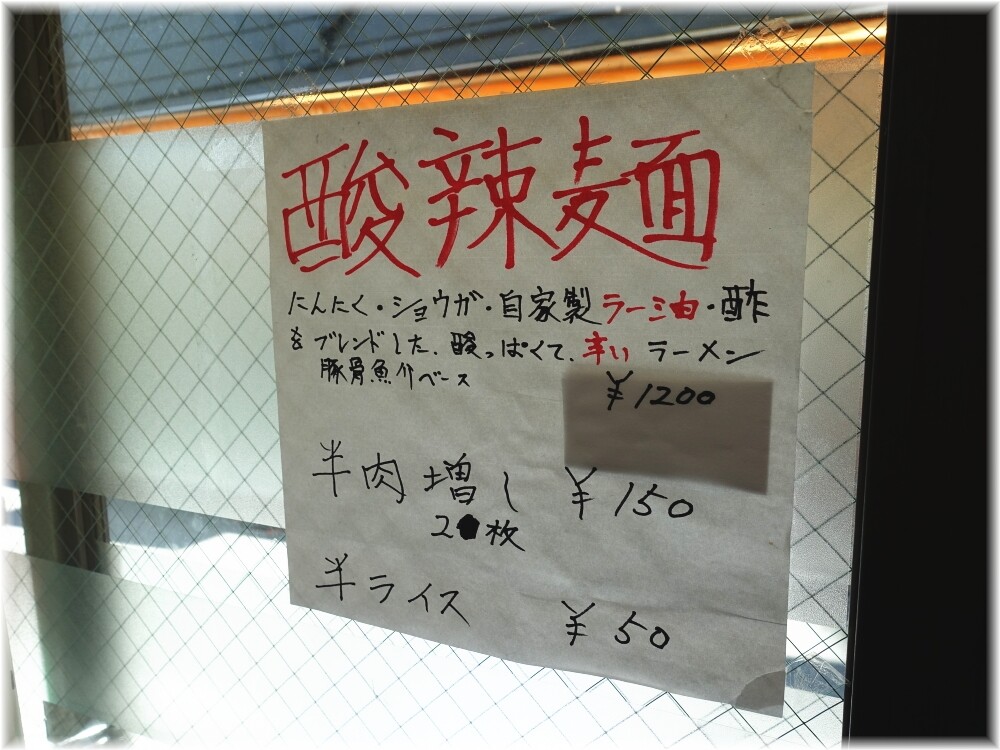 酸辣麺
にんにく・ショウガ・自家製ラー油・酢
をブレンドした、酸っぱくて、辛い ラーメン
豚骨魚介ベース
¥1200
半肉増し ¥150
2枚
半ライス ¥50